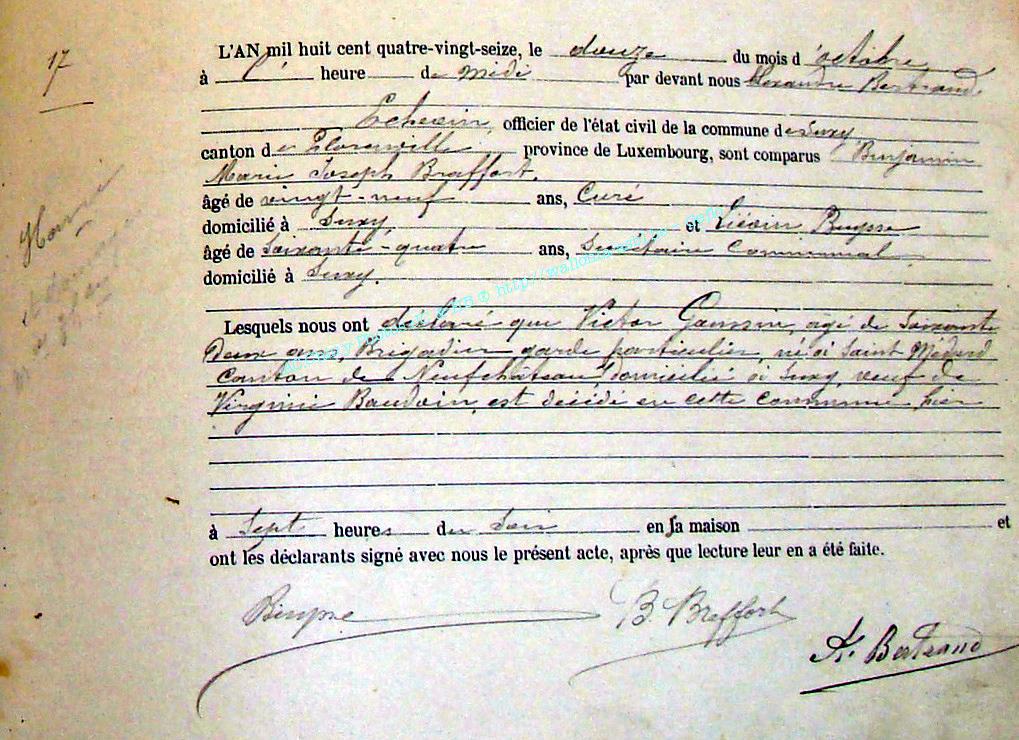 17
L'AN mil huit cent quatre-vingt-seize, le douze du mois d'octobre
à heure de midi par devant nous Alexandre Bertrand
Echevin, officier de l'état civil de la commune de Suxy
canton de Florenville province de Luxembourg, sont comparus Benjamin
Marie Joseph Braffort.
âgé de vingt-neuf ans, Curé
domicilié à Suxy, et Buysse
âgé de Soixante-quatre ans, Secrétaire Communal,
domicilié à Suxy.
Lesquels nous ont déclaré que Victor agé de Soixante
Deux ans, Brigadier garde particulier, né à Saint Médard
Canton de Neufchâteau domicilié à Suxy, veuf de
Virginie Baudoin, est décédé en cette commune hier
à Sept heures du Soir en sa maison et
ont les déclarants signé avec nous le présent acte, après que lecture leur en a été faite.
Buysse B. Braffort
Bertrand